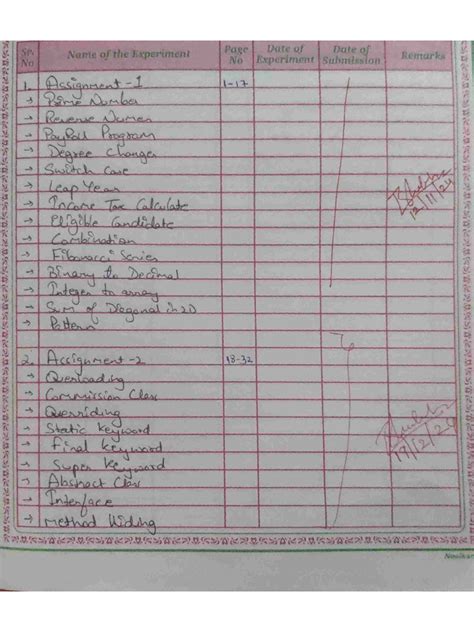 Sr. No Name of the Experiment Page No Date of Experiment Date of Submission Remarks
1. Assignment -1 1-17
→ Prime Number
→ Reverse Numer
→ PayRoll Program
→ Degree Changer
→ Switch Case
→ Leap Year
→ Income Tax Calculate
→ Eligible Candidate
→ Combination
→ Fibonacci Series
→ Binary to Decimal
→ Integer to array
→ Sum of Diagonal in 2D
→ Pattern
12/11/24
2. Assignment -2 18-32
→ Overloading
→ Commission Class
→ Overriding
→ Static Keyword
→ Final Keyword
→ Super Keyword
→ Abstract Class
→ Interface
→ Method Hiding
17/12/24